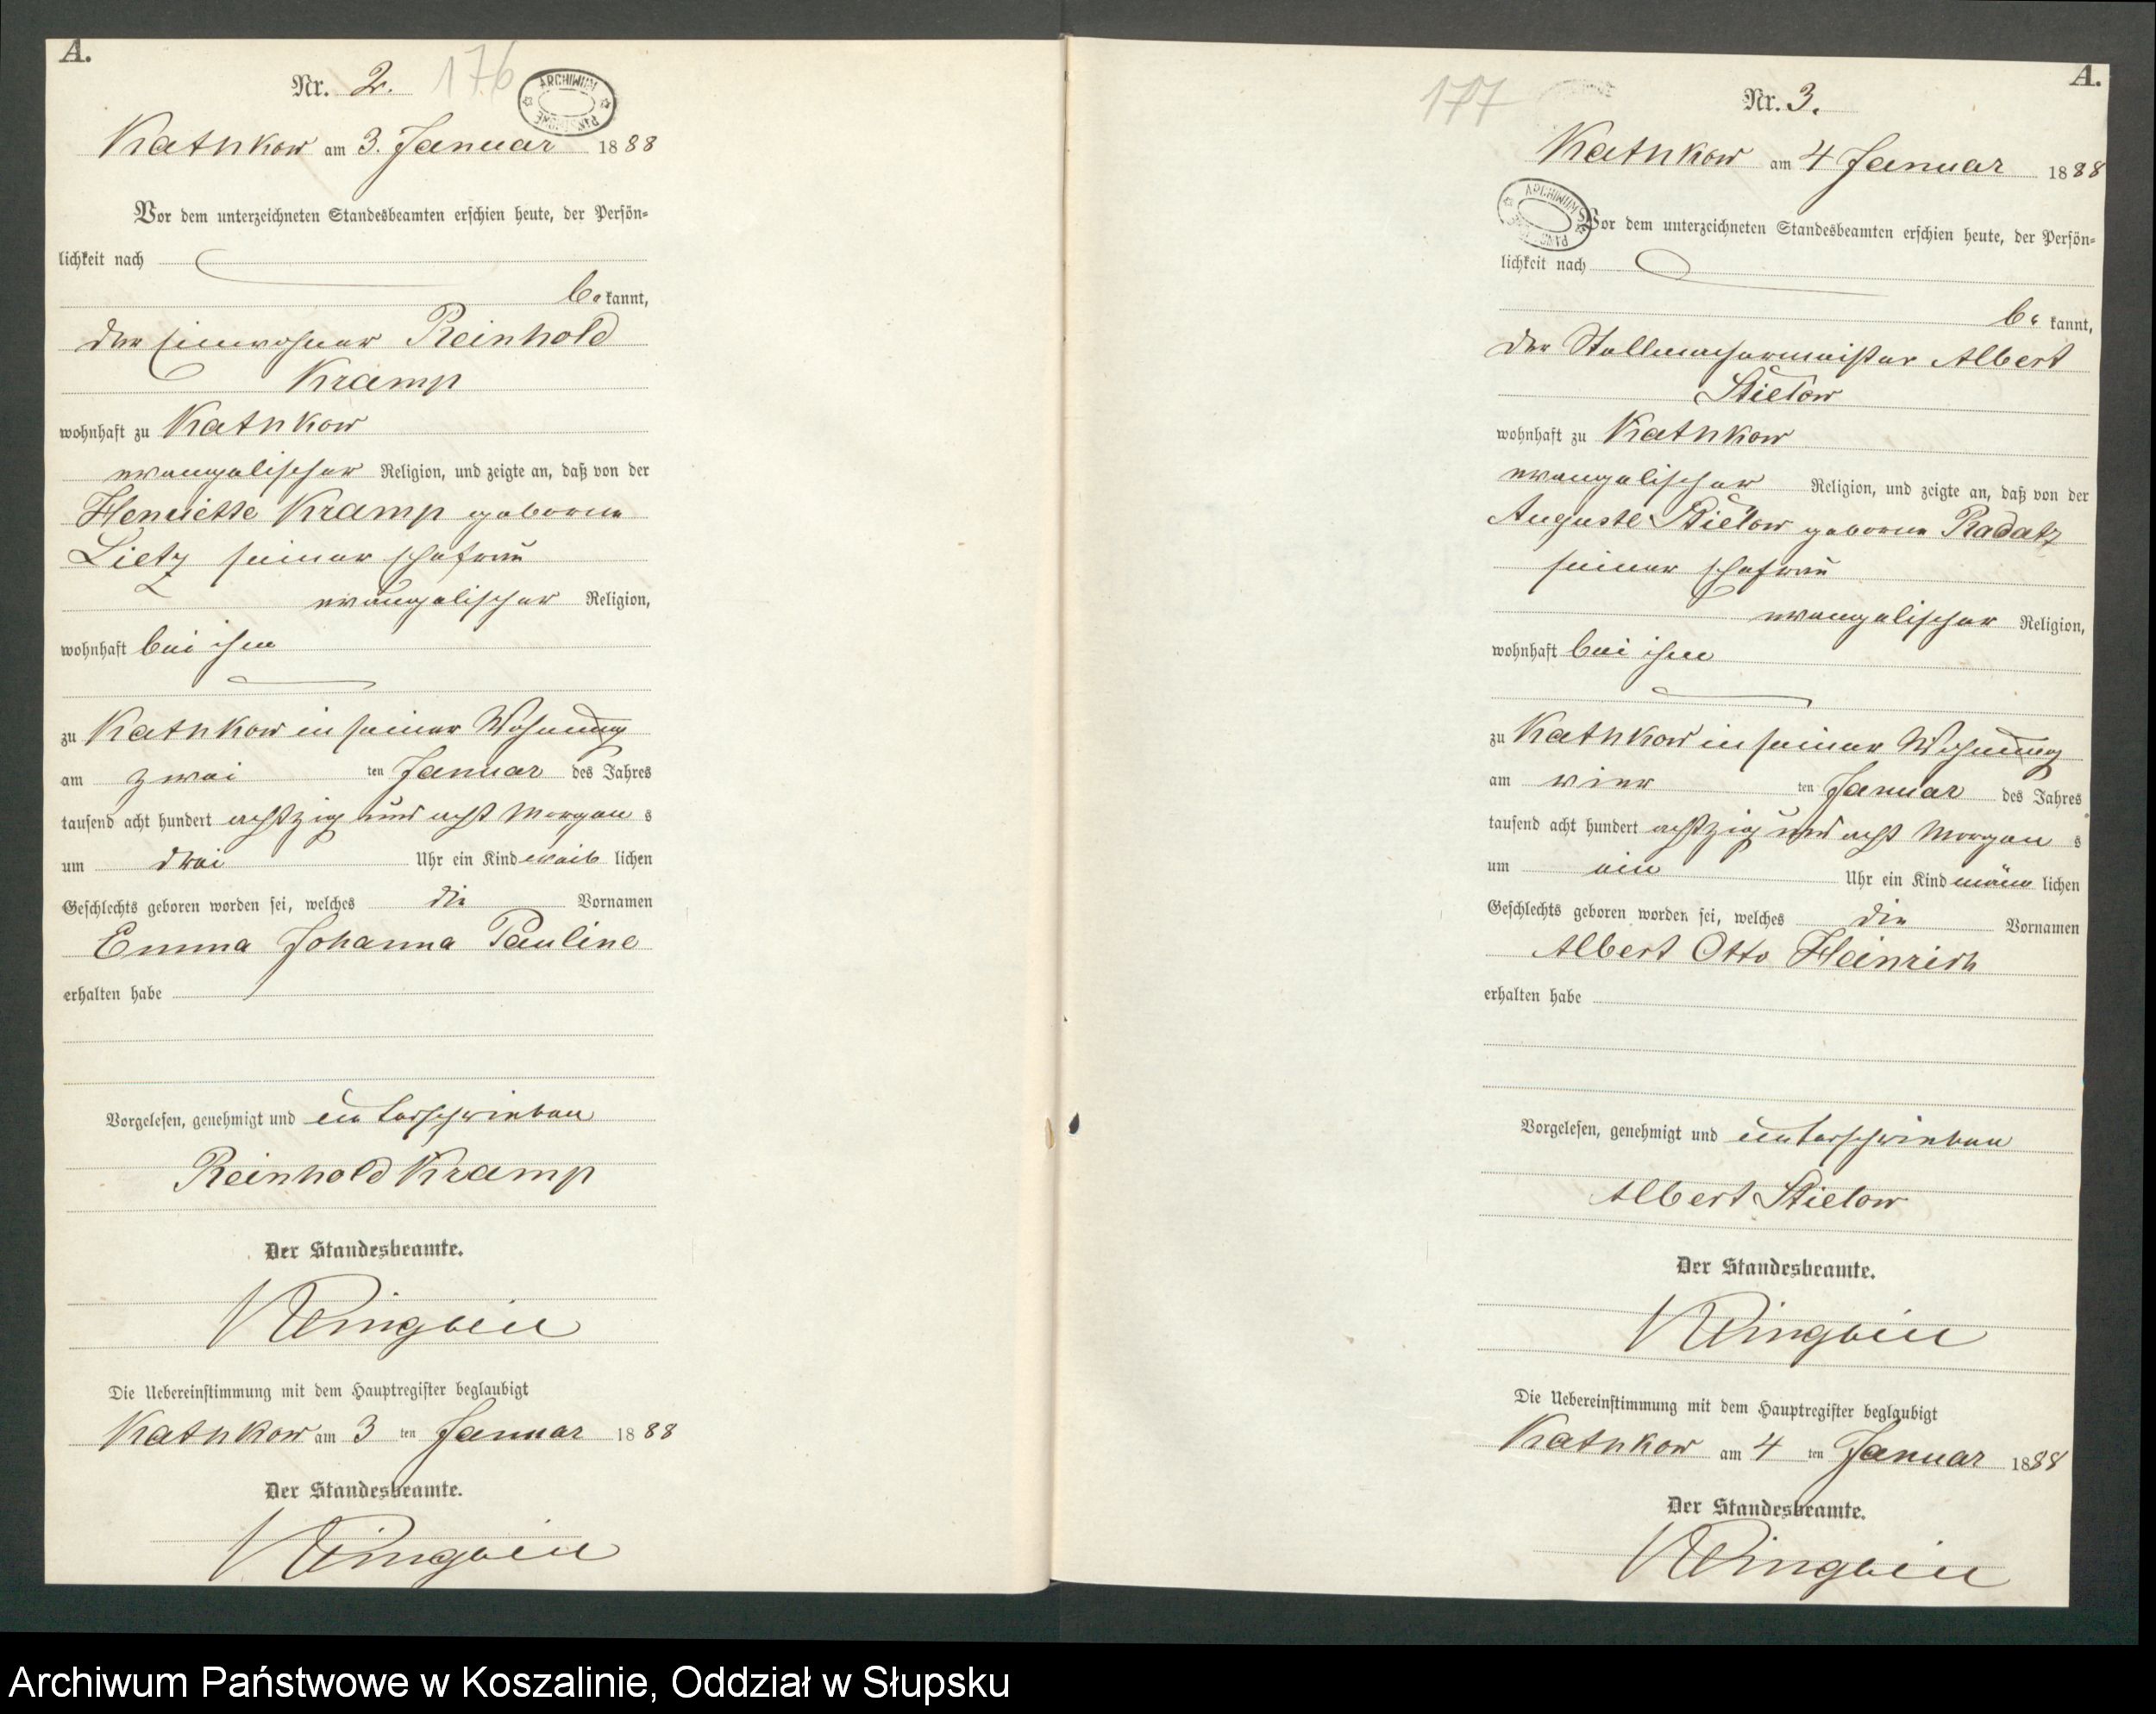 A.
Nr. 2. 176
ARCHIWUM PAŃSTWOWE
Kathkow am 3. Januar 1888
Vor dem unterzeichneten Standesbeamten erschien heute, der Persön-
lichkeit nach
be kannt,
der Einwohner Reinhold
Kramp
wohnhaft zu Kathkow
evangelischer Religion, und zeigte an, daß von der
Henriette Kramp geborne
Lietz seiner Ehefrau
evangelischer Religion,
wohnhaft bei ihm
zu Kathkow in seiner Wohnung
am zwei ten Januar des Jahres
tausend acht hundert achtzig und acht Morgen s
um drei Uhr ein Kind weib lichen
Geschlechts geboren worden sei, welches die Vornamen
Emma Johanna Pauline
erhalten habe
Vorgelesen, genehmigt und unterschrieben
Reinhold Kramp
Der Standesbeamte.
Die Uebereinstimmung mit dem Hauptregister beglaubigt
Kathkow am 3 ten Januar 1888
Der Standesbeamte.
A.
177 Nr. 3.
Kathkow am 4 Januar 1888
ARCHIWUM PAŃSTWOWE
Vor dem unterzeichneten Standesbeamten erschien heute, der Persön-
lichkeit nach
be kannt,
der Stellmachermeister Albert
Stielow
wohnhaft zu Kathkow
evangelischer Religion, und zeigte an, daß von der
Auguste Stielow geborne Radatz
seiner Ehefrau
evangelischer Religion,
wohnhaft bei ihm
zu Kathkow in seiner Wohnung
am vier ten Januar des Jahres
tausend acht hundert achtzig und acht Morgen s
um ein Uhr ein Kind männ lichen
Geschlechts geboren worden sei, welches die Vornamen
Albert Otto Heinrich
erhalten habe
Vorgelesen, genehmigt und unterschrieben
Albert Stielow
Der Standesbeamte.
Die Uebereinstimmung mit dem Hauptregister beglaubigt
Kathkow am 4 ten Januar 1888
Der Standesbeamte.
Archiwum Państwowe w Koszalinie, Oddział w Słupsku